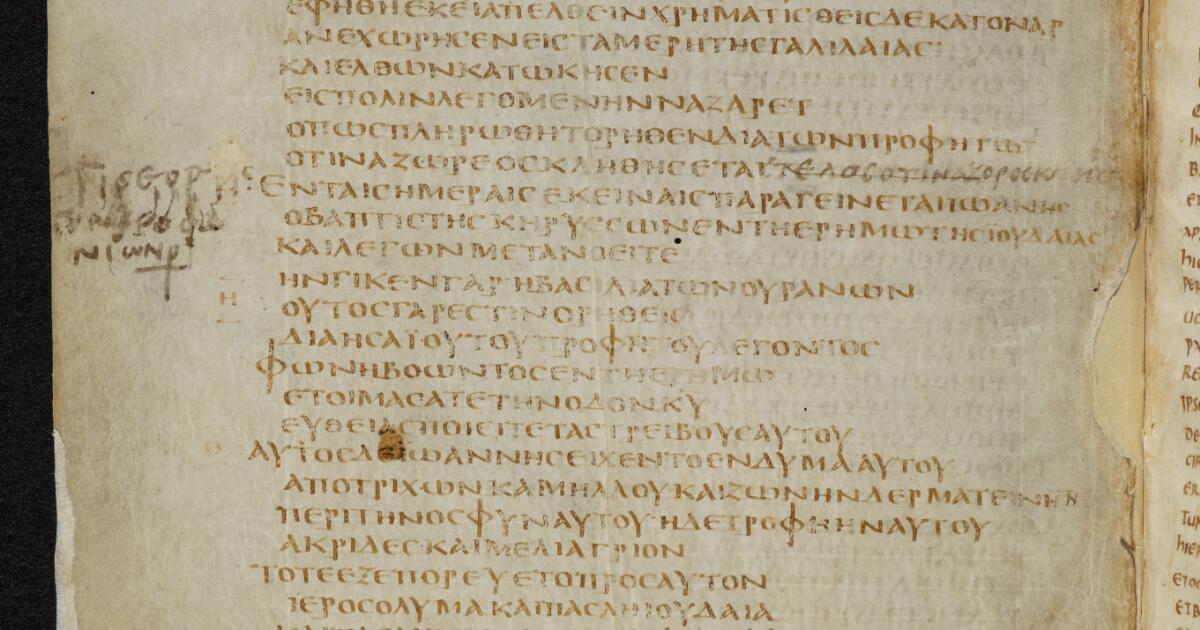 ΕΦΗΘΗΕΚΕΙΑΠΕΛΘΕΙΝΧΡΗΜΑΤΙСΘΕΙСΔΕΚΑΤΟΝΑΡ
ΑΝΕΧΩΡΗСΕΝΕΙСΤΑΜΕΡΗΤΗСΓΑΛΙΛΑΙΑС
ΚΑΙΕΛΘΩΝΚΑΤΩΚΗСΕΝ
ΕΙСΠΟΛΙΝΛΕΓΟΜΕΝΗΝΝΑΖΑΡΕΤ
ΟΠΩСΠΛΗΡΩΘΗΤΟΡΗΘΕΝΔΙΑΤΩΝΠΡΟΦΗΤΩ
ΟΤΙΝΑΖΩΡΕΟСΚΛΗΘΗСΕΤΑΙ ΤΕΛΟС ΟΤΙΝΑΖΟΡΟСΚ
ΕΝΤΑΙСΗΜΕΡΑΙСΕΚΕΙΝΑΙСΠΑΡΑΓΕΙΝΕΤΑΙΙΩΑΝΗС
ΟΒΑΠΤΙСΤΗСΚΗΡΥССΩΝΕΝΤΗΕΡΗΜΩΤΗСΪΟΥΔΑΙΑС
ΚΑΙΛΕΓΩΝΜΕΤΑΝΟΕΙΤΕ
ΗΝΓΙΚΕΝΓΑΡΗΒΑСΙΛΙΑΤΩΝΟΥΡΑΝΩΝ
Η
ΟΥΤΟСΓΑΡΕСΤΙΝΟΡΗΘΕΙС
ΔΙΑΗСΑΪΟΥΤΟΥΠΡΟΦΗΤΟΥΛΕΓΟΝΤΟС
ΦΩΝΗΒΟΩΝΤΟСΕΝΤΗΕΡΗΜΩ
ΕΤΟΙΜΑСΑΤΕΤΗΝΟΔΟΝΚΥ
ΕΥΘΕΙΑСΠΟΙΕΙΤΕΤΑСΤΡΕΙΒΟΥСΑΥΤΟΥ
Θ
ΑΥΤΟСΔΕΙΩΑΝΝΗСΕΙΧΕΝΤΟΕΝΔΥΜΑΑΥΤΟΥ
ΑΠΟΤΡΙΧΩΝΚΑΜΗΛΛΟΥΚΑΙΖΩΝΗΝΔΕΡΜΑΤΕΙΝΗΝ
ΠΕΡΙΤΗΝΟСΦΥΝΑΥΤΟΥΗΔΕΤΡΟΦΗΗΝΑΥΤΟΥ
ΑΚΡΙΔΕСΚΑΙΜΕΛΙΑΓΡΙΟΝ
ΤΟΤΕΕΞΕΠΟΡΕΥΕΤΟΠΡΟСΑΥΤΟΝ
ΪΕΡΟСΟΛΥΜΑΚΑΙΠΑСΑΗΙΟΥΔΑΙΑ